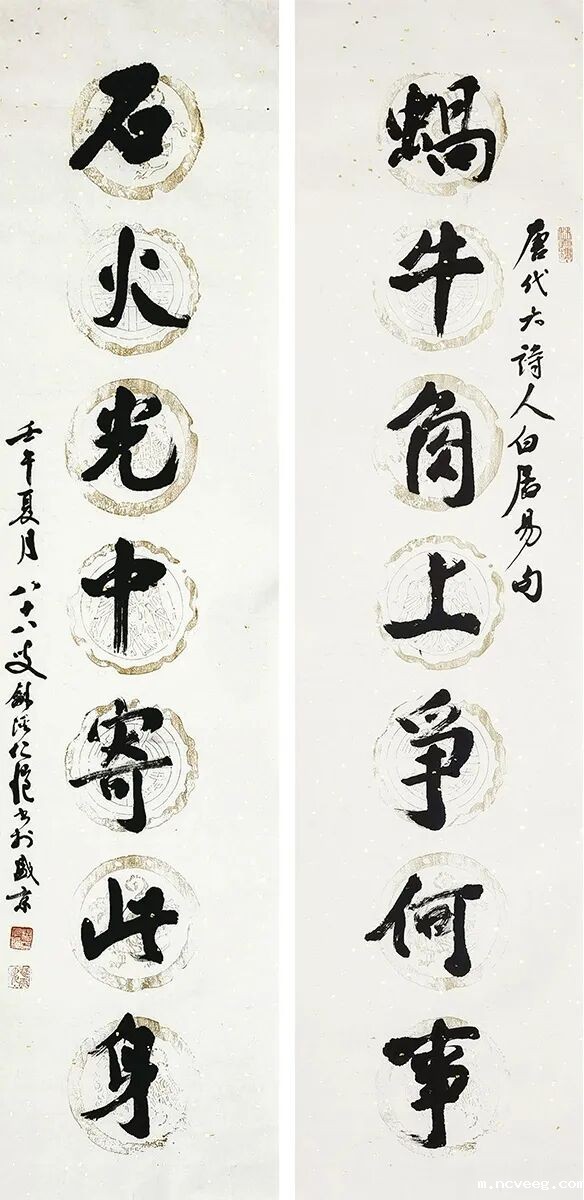 蝸牛角上爭何事
唐代大詩人白居易句
石火光中寄此身
壬午夏月八十八叟劍溪仁愷书於盛京
m.ncveeg.com